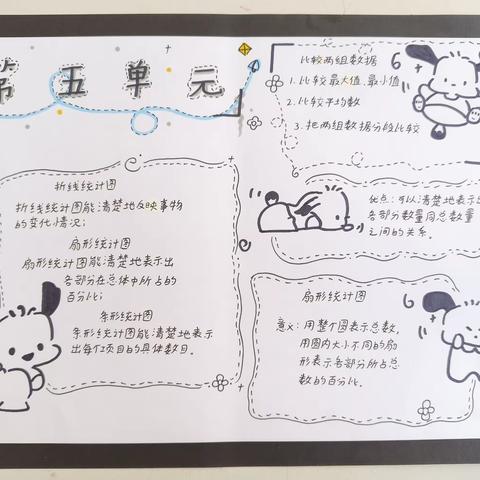 第五单元
折线统计图
折线统计图能清楚地反映事物
的变化情况;
扇形统计图
扇形统计图能清楚地表示出
各部分在总体中所占的
百分比;
条形统计图
条形统计图能清楚地表示
出每个项目的具体数目。
比较两组数据
1.比较最大值、最小值
2.比较平均数
3.把两组数据分段比较
优点:可以清楚地表示出
各部分数量同总数量
之间的关系。
扇形统计图
意义:用整个图表示总数,
用圆内大小不同的扇
形表示各部分所占总
数的百分比。